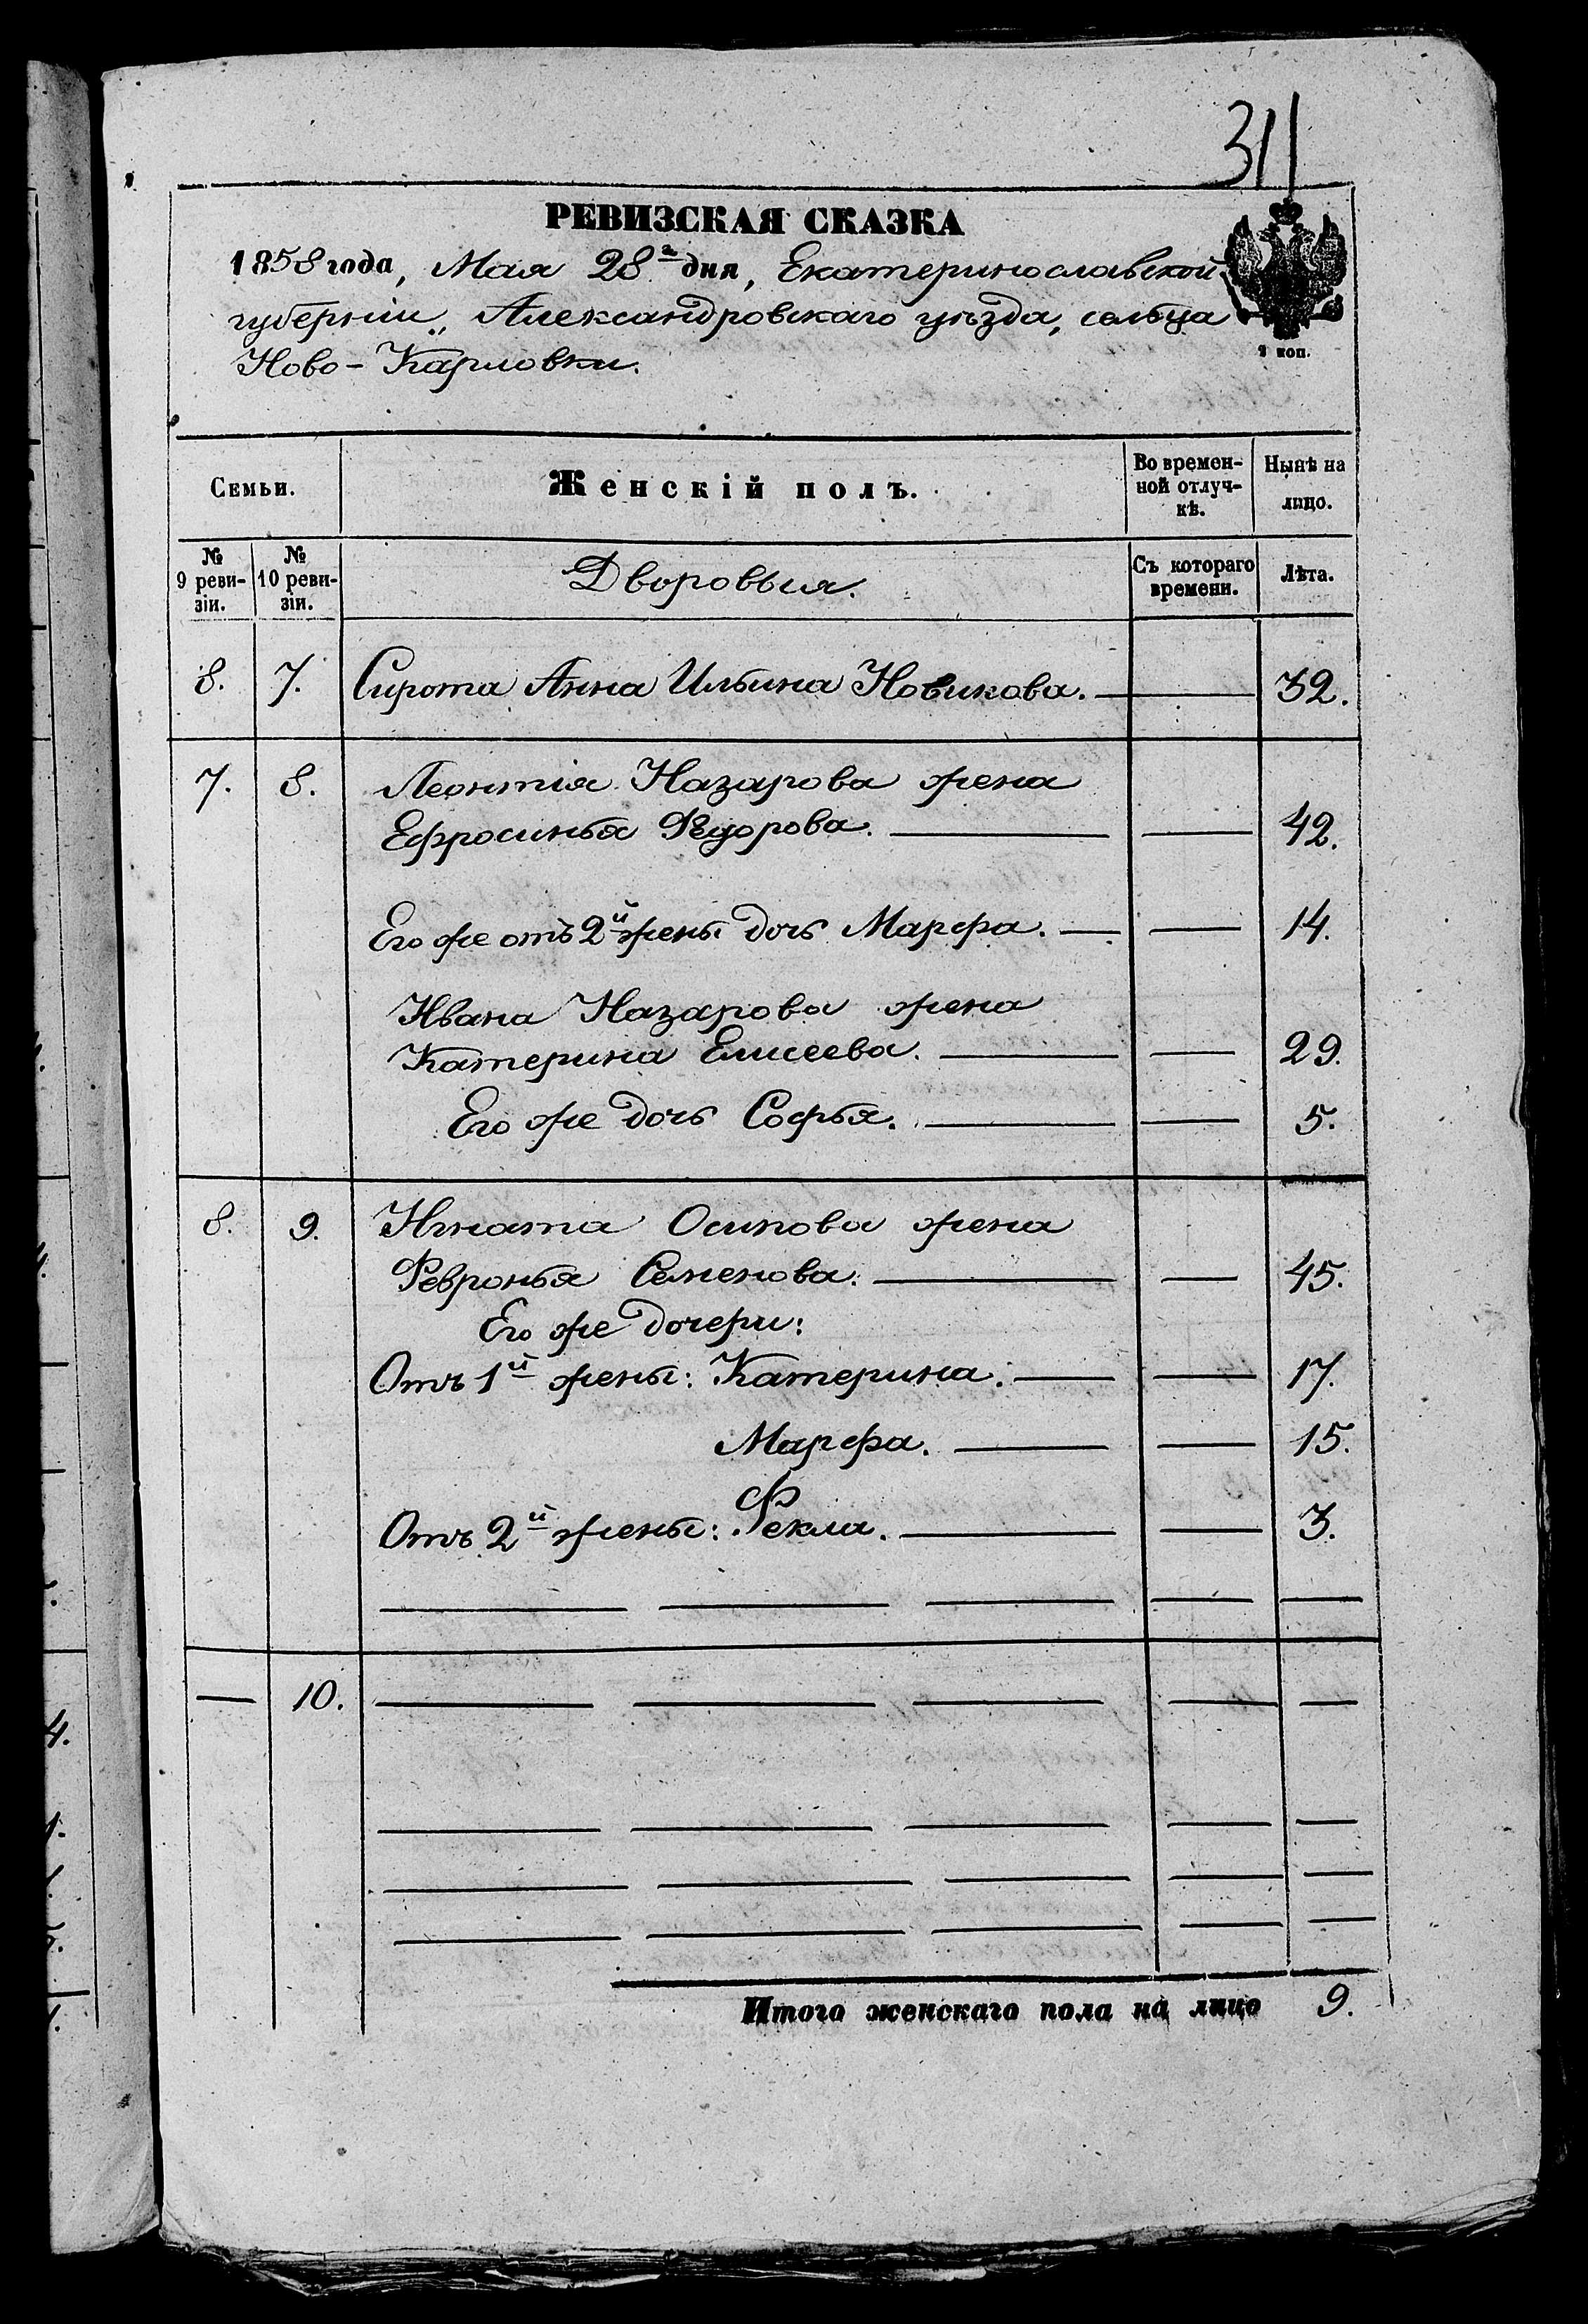 311
РЕВИЗСКАЯ СКАЗКА
1858 года, Мая 28го дня, Екатеринославской
губерніи, Александровскаго уѣзда, сельца
Ново-Карловки.
2 коп.
Семьи. Женскій полъ. Во времен-ной отлуч-кѣ. Нынѣ на лицо.
№ 9 реви-зіи. № 10 реви-зіи. Дворовыя. Съ котораго времени. Лѣта.
8. 7. Сирота Анна Ильина Новикова. — 32.
7. 8. Леонтія Назарова жена
Ефросинья Федорова. — — 42.
Его же отъ 2й жены дочь Марфа. — — 14.
Ивана Назарова жена
Катерина Елисеева. — — 29.
Его же дочь Софья. — — 5.
8. 9. Игната Осипова жена
Февронья Семенова. — — 45.
Его же дочери:
Отъ 1й жены: Катерина. — — 17.
Марфа. — — 15.
Отъ 2й жены: Фекла. — — 3.
— 10. — — — — —
Итого женскаго пола на лицо 9.